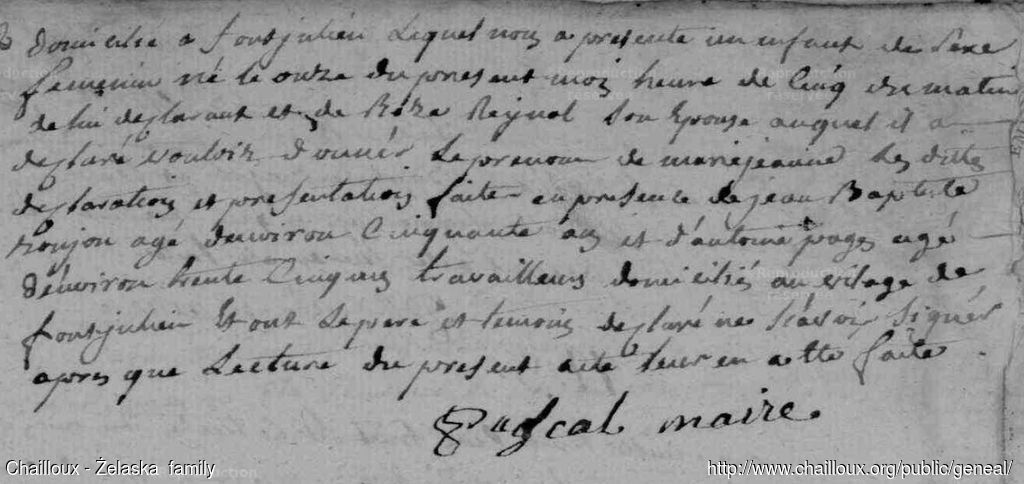 domicilié a fontjulien Lequel nous a presenté un enfant de Sexe
feminin né le onze du present mois heure de Cinq du matin
de lui desclarant et de Roze Reynal Son Epouse auquel il a
desclaré vouloir donnér Le prenom de marie jeanne Les dittes
desclarations et presentations faite en presence de jean Baptiste
agé d'environ Cinquante ans et d'antoine pages agé
d'énviron trente Cinq ans travailleurs domiciliés au vilage de
fontjulien Et ont Le pere et temoins desclaré ne Scavoir Signér
apres que Lecture du present acte leur en a été faite
Pascal maire
Chailloux - Żelaska family
http://www.chailloux.org/public/geneal/